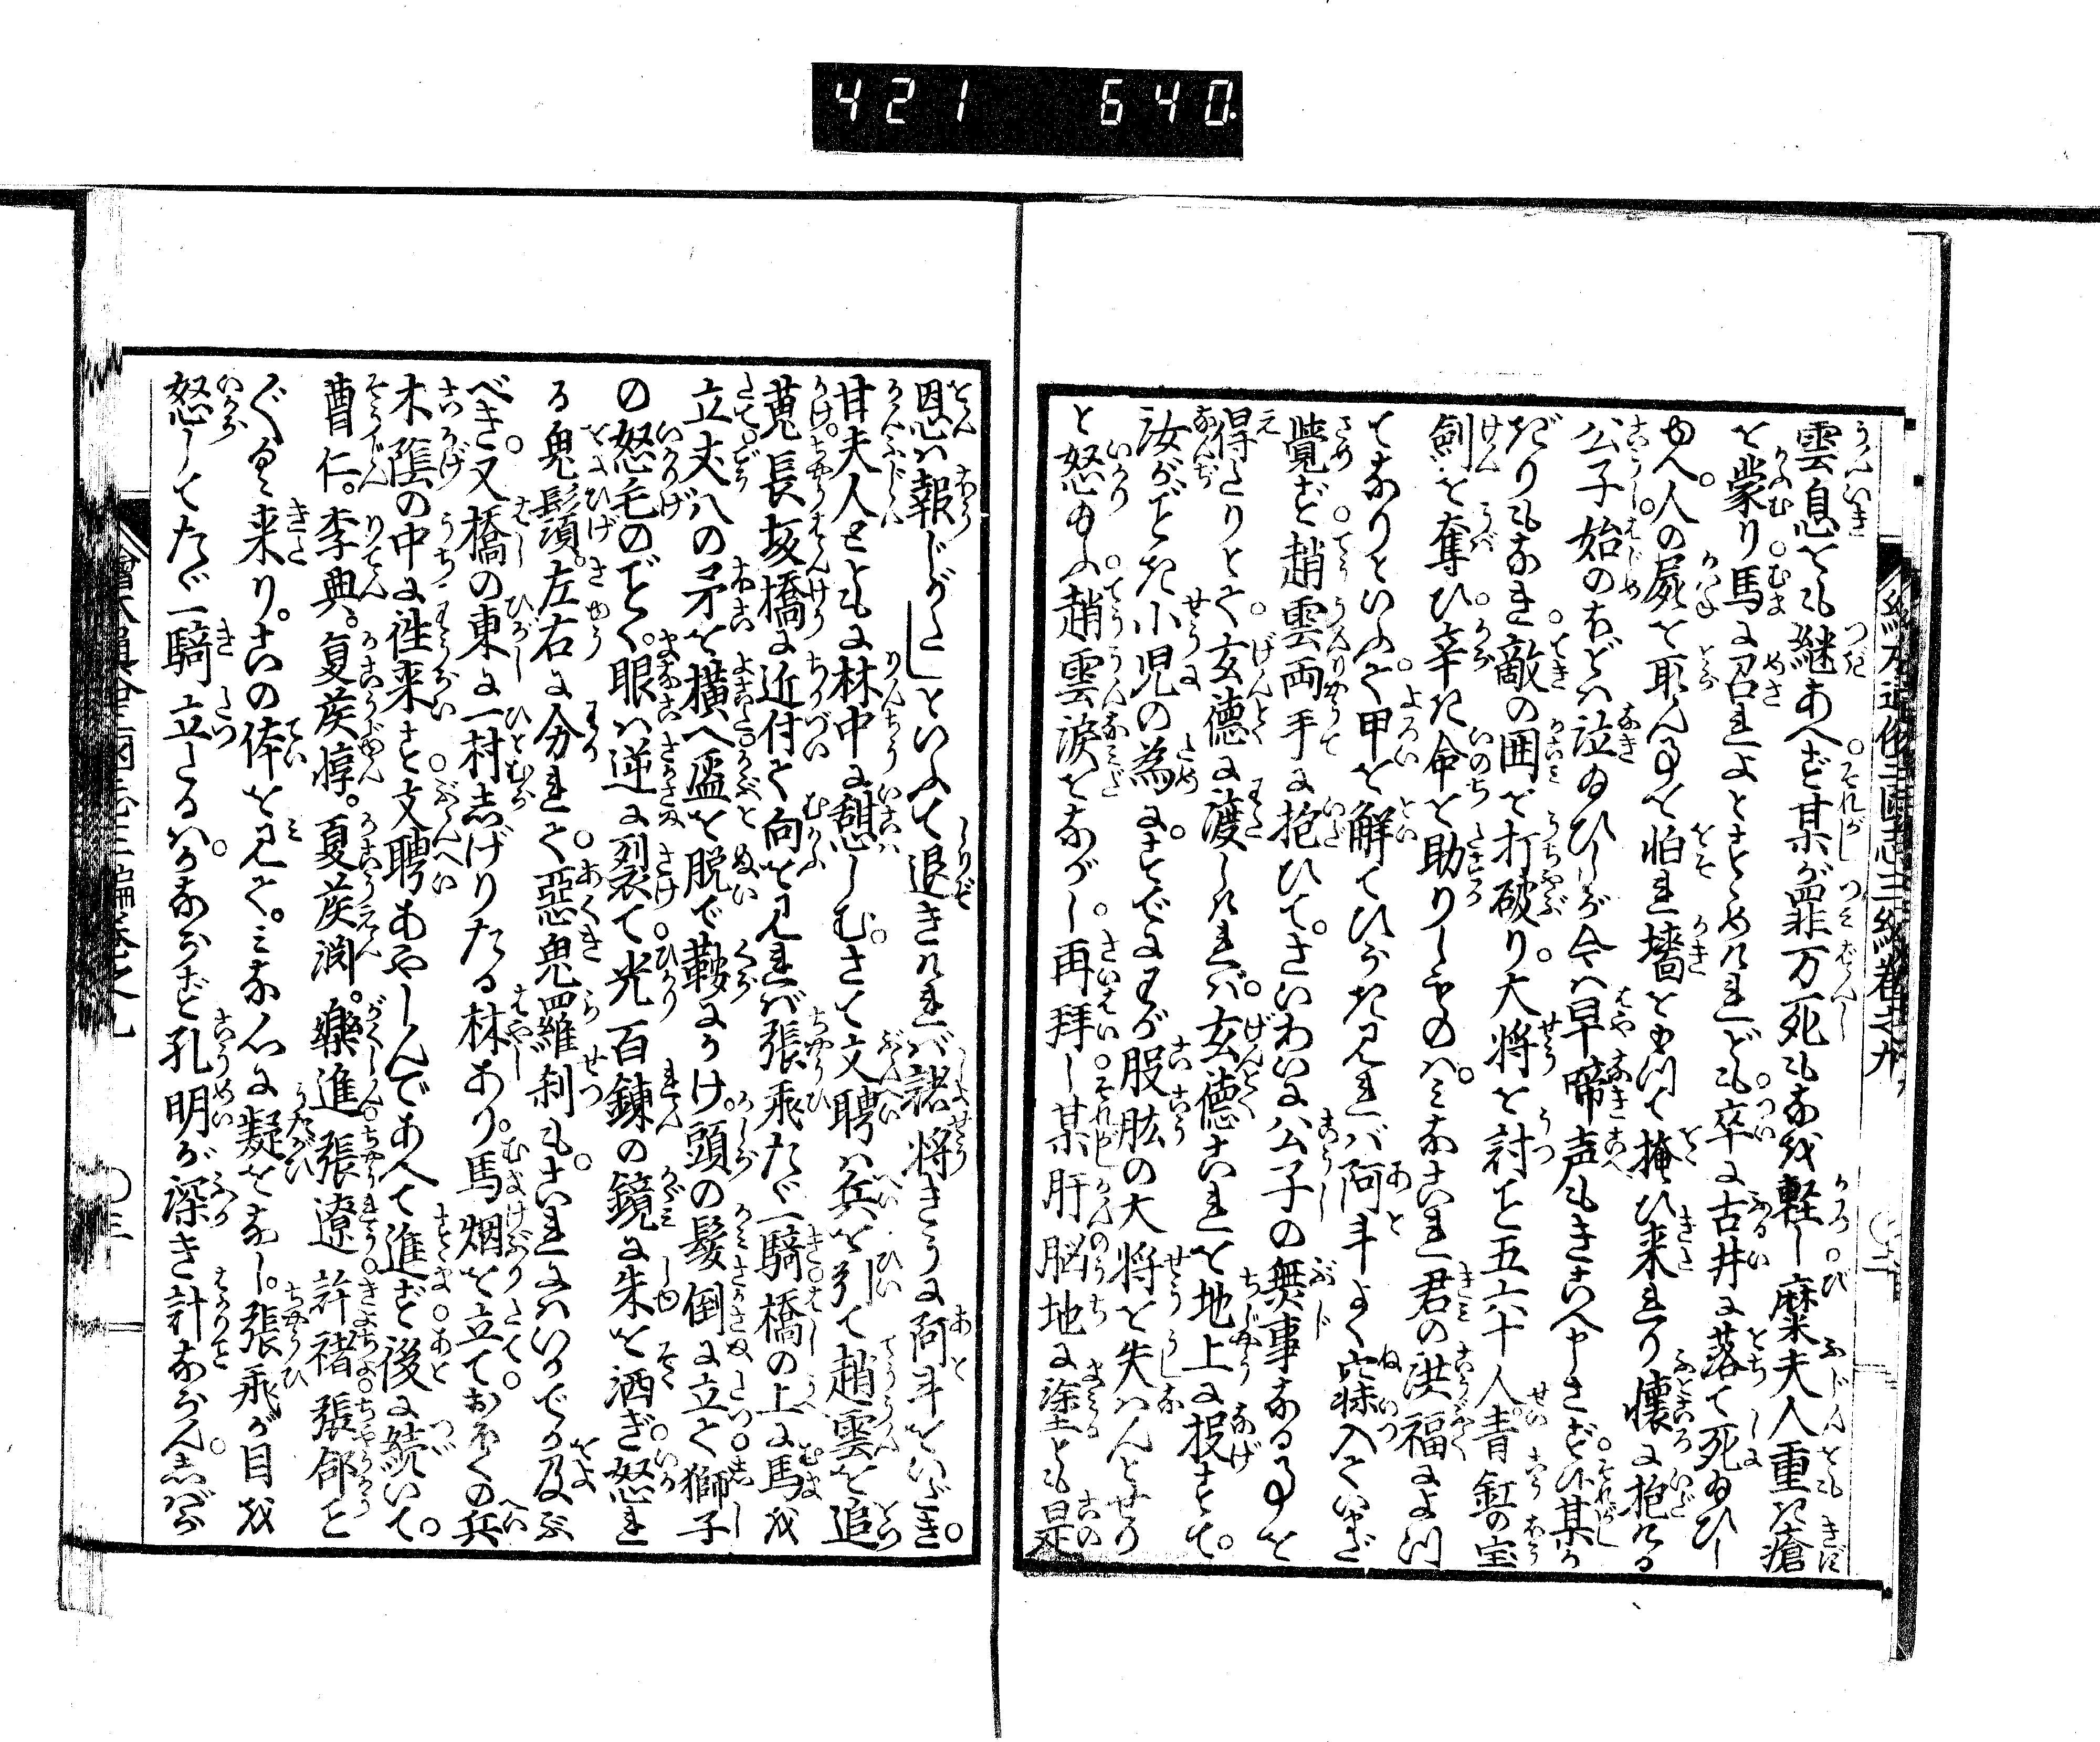 421 640
雲息をも継あへず某が罪万死も猶軽し麋夫人重き瘡
を蒙り馬に召れよとすゝめけれども卒に古井に落て死給ひし
ゆへ。人の屍を取ん事を怕れ墻を崩て掩ひ来れり懐に抱ける
公子始のほどは泣給ひしが今は早啼声もきこへ申さず某が
だりもなき敵の囲を打破り。大将を討こと五六十人。青釭の宝
剣を奪ひ辛き命を助りしものは。みなこれ君の洪福によつ
てなりといふて甲を解てひらき見れば阿斗よく寐入ていまだ
覚ず趙雲両手に抱ひて。さいわいに公子の無事なる事を
得たりとて玄徳に渡しければ。玄徳これを地上に投すて。
汝がごとき小児の為に。すでにわが股肱の大将を失はんとせり
と怒給ふ趙雲涙をながし再拝し某肝脳地に塗とも是
恩は報じがたしといふて退きければ諸将きうに阿斗をいだき。
甘夫人とともに林中に憩しむ。さて文聘は兵を引て趙雲を追
蒐長坂橋に近付て向を見れば張飛たゞ一騎橋の上に馬を
立丈八の矛を横へ盔を脱で鞍にかけ。頭の髪倒に立て獅子
の怒毛のごとく。眼は逆に裂て光百錬の鏡に朱を洒ぎ。怒れ
る鬼髭頭。左右に分れて悪鬼羅刹も。これにはいかでか及ぶ
べき。又橋の東に一村しげりたる林あり。馬烟を立ておほくの兵
木陰の中に往来す文聘あやしんであへて進ず後に続いて。
曹仁。李典。夏侯惇。夏侯渕。楽進張遼許褚張郃と
ぐ〳〵来り。この体を見て。みな心に疑をなし。張飛が目を
怒してたゞ一騎立たるは。かならず孔明が深き計ならん。しばら